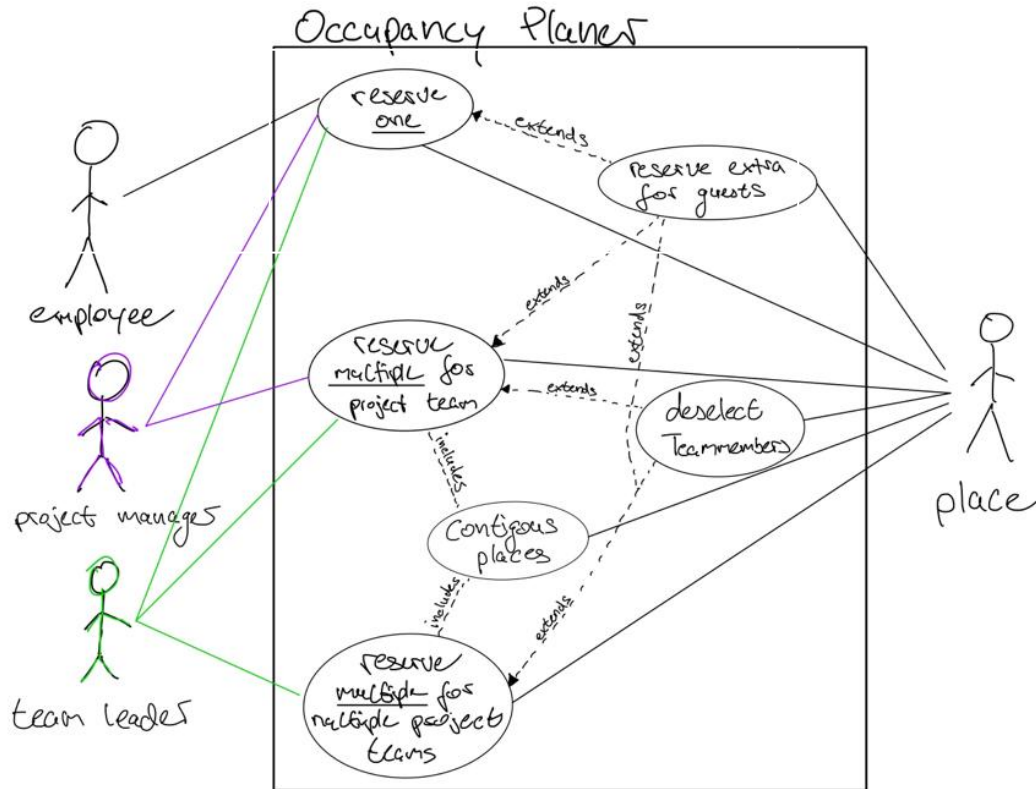 Occupancy Planer
reserve
one
extends
reserve extra
for guests
employee
extends
extends
reserve
multiple for
project team
extends
deselect
Teammembers
project manager
includes
contigous
places
place
includes
extends
team leader
reserve
multiple for
multiple project
teams